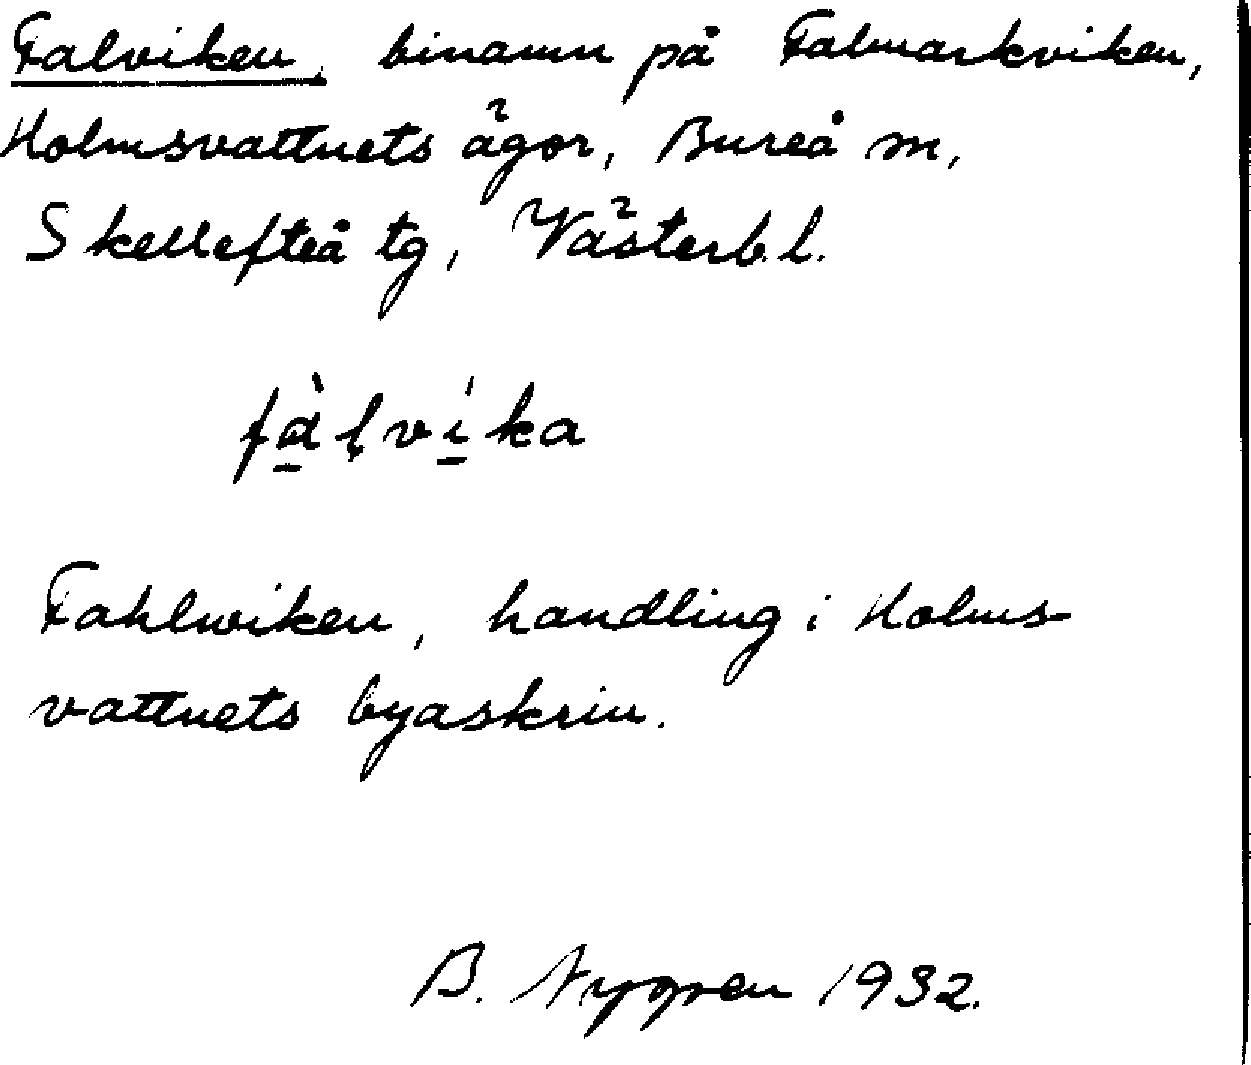 Falviken, binamn på Falmarkviken,
Holmsvattnets ägor, Bureå sn,
Skellefteå tg, Västerb.l.
fà̱ḷví̱ka
Fahlwiken, handling i Holms-
vattnets byaskrin.
B. Nygren 1932.